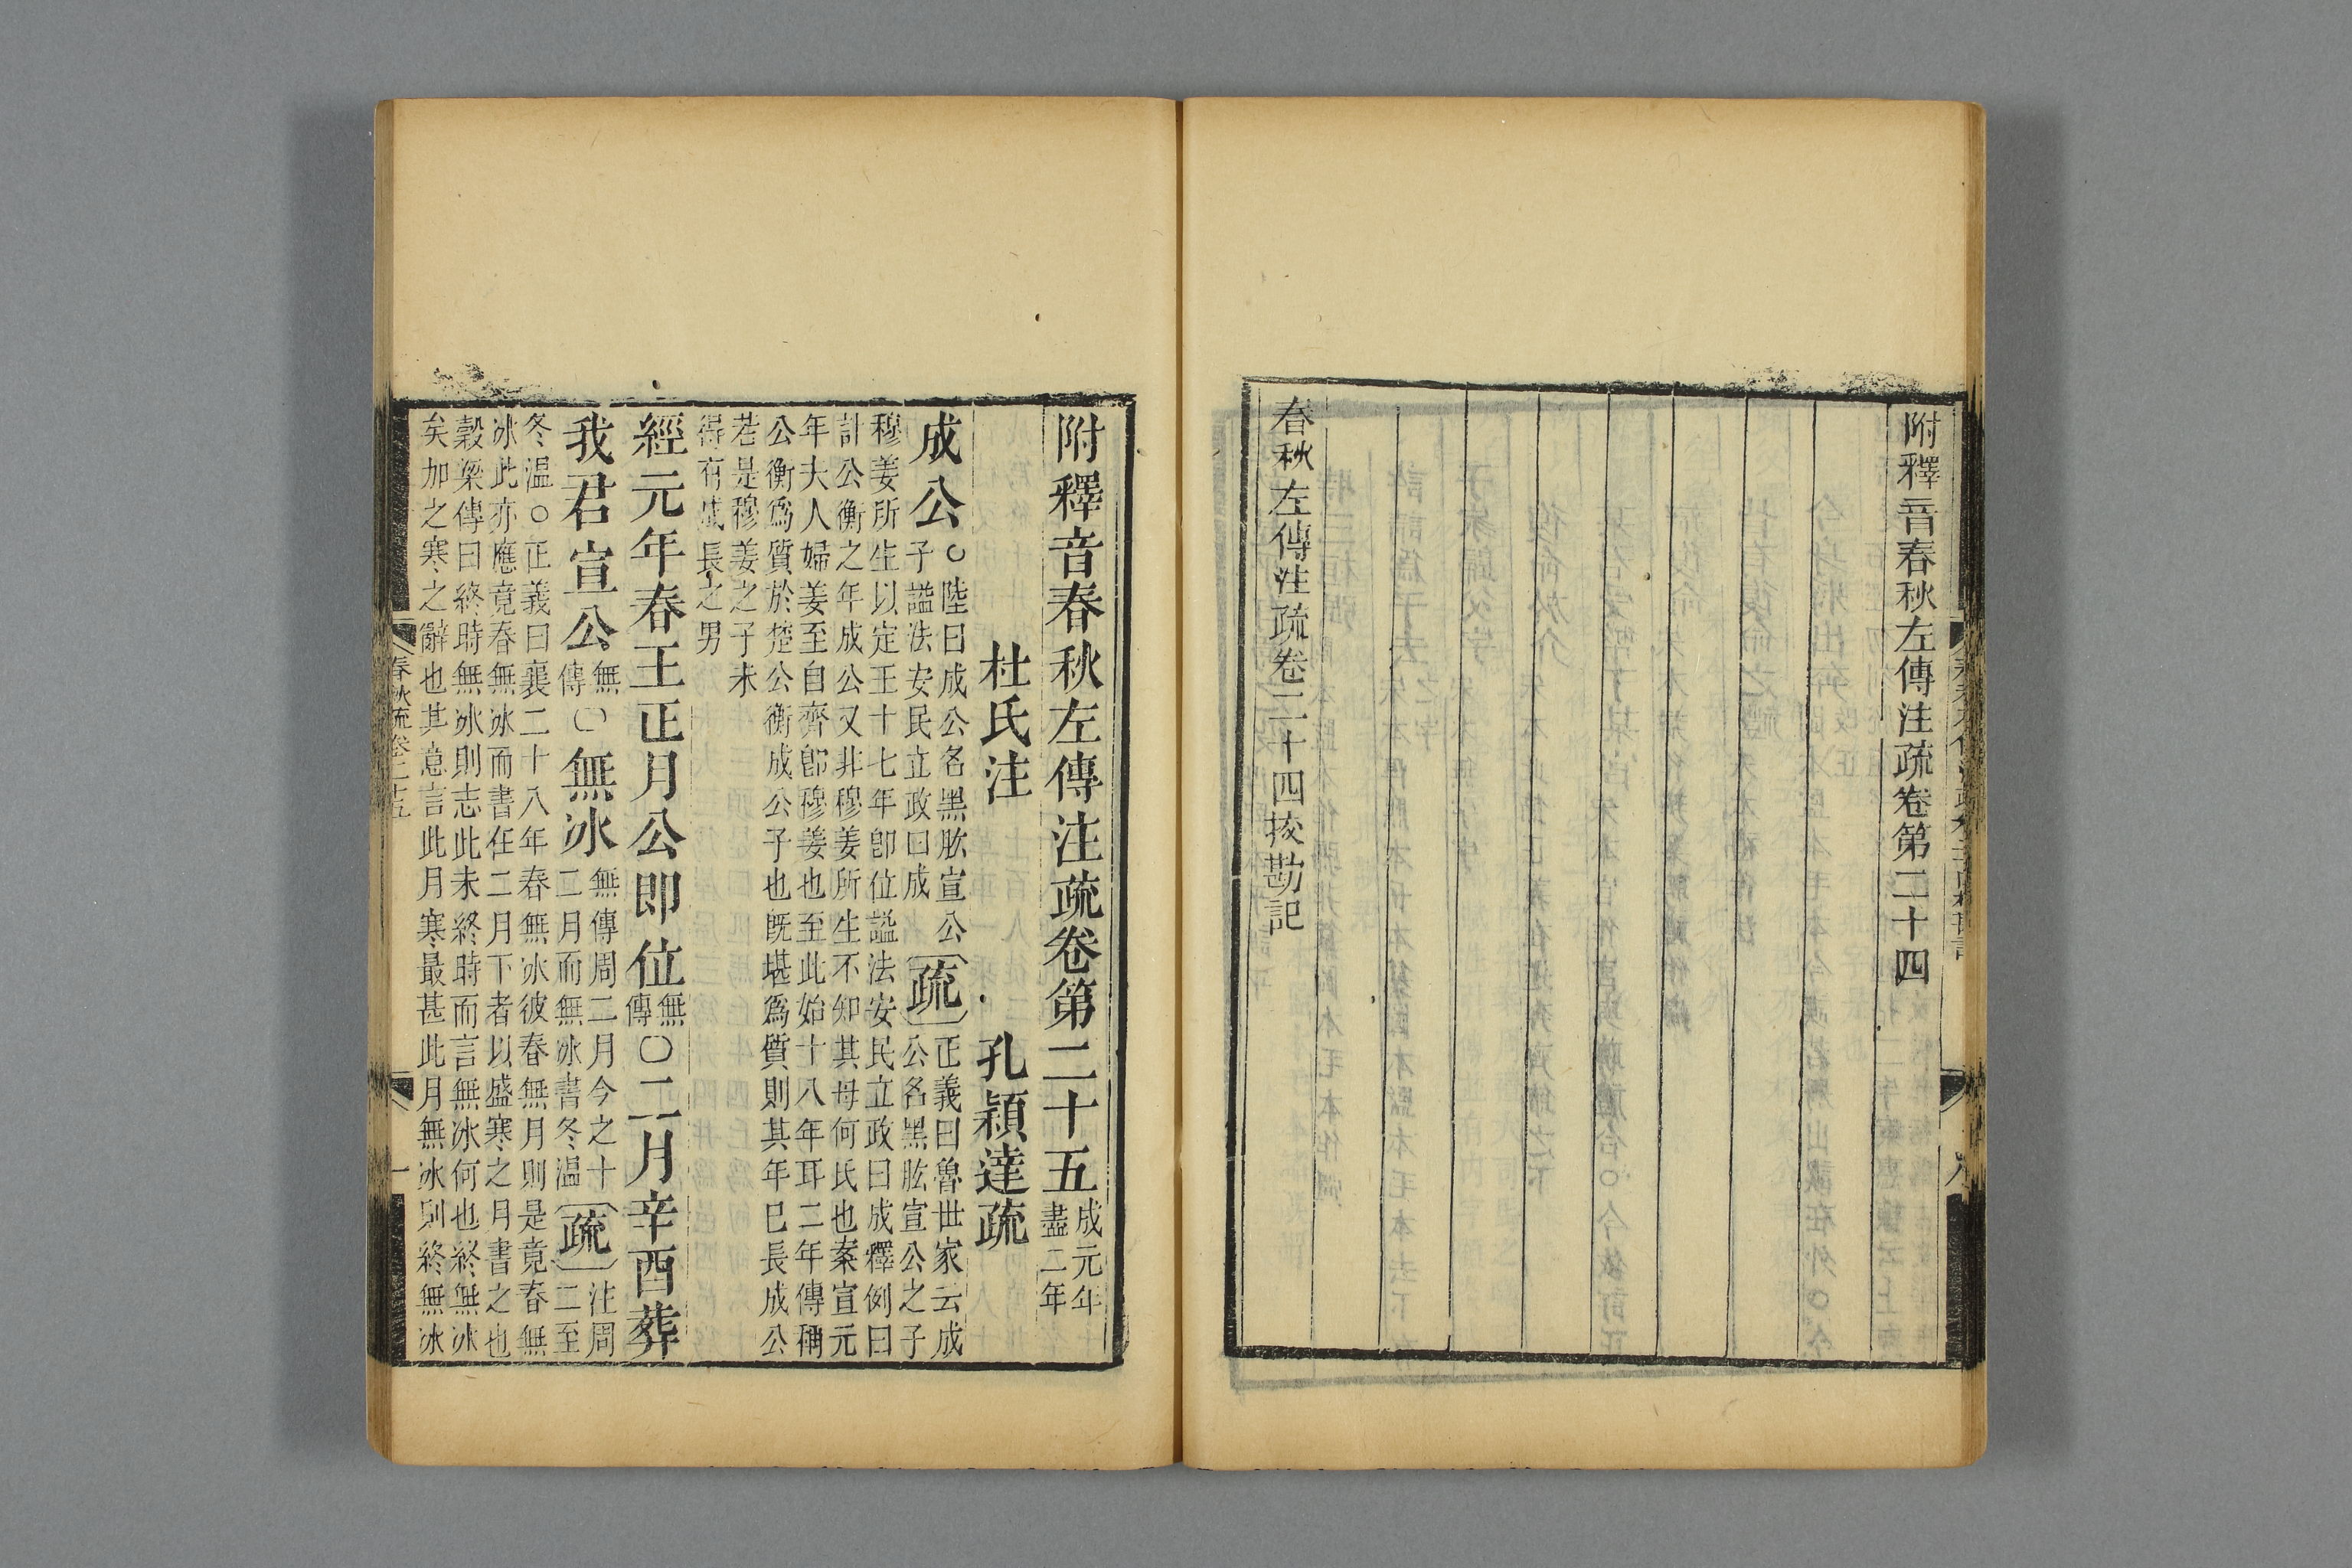 附釋音春秋左傳注疏卷第二十四
春秋左傳注疏卷二十四挍勘記
附釋音春秋左傳注疏卷第二十五 成元年
盡二年
杜氏注 孔穎達疏
成公 ○陸曰成公名黑肱宣公
子謚法安民立政曰成 疏 正義曰魯世家云成
公名黑肱宣公之子
穆姜所生以定王十七年即位謚法安民立政曰成釋例曰
計公衡之年成公又非穆姜所生不知其母何氏也案宣元
年大人婦姜至自齊即穆姜也至此始十八年耳二年傳稱
公衡爲質於楚公衡成公子也旣堪爲質則其年已長成公
若是穆姜之子未
得有成長之男
經元年春王正月公即位 無
傳 ○二月辛酉葬
我君宣公 無
傳 ○無冰 無傳周二月今之十
二月而無冰書冬温 疏 注周
二至
冬温○正義曰襄二十八年春無冰彼春無月則是竟春無
冰此亦應竟春無冰而書在二月下者以盛寒之月書之也
穀梁傳曰終時無冰則志此未終時而言無冰何也終無冰
矣加之寒之辭也其意言此月寒最甚此月無冰則終無冰
春秋疏卷二十五
一